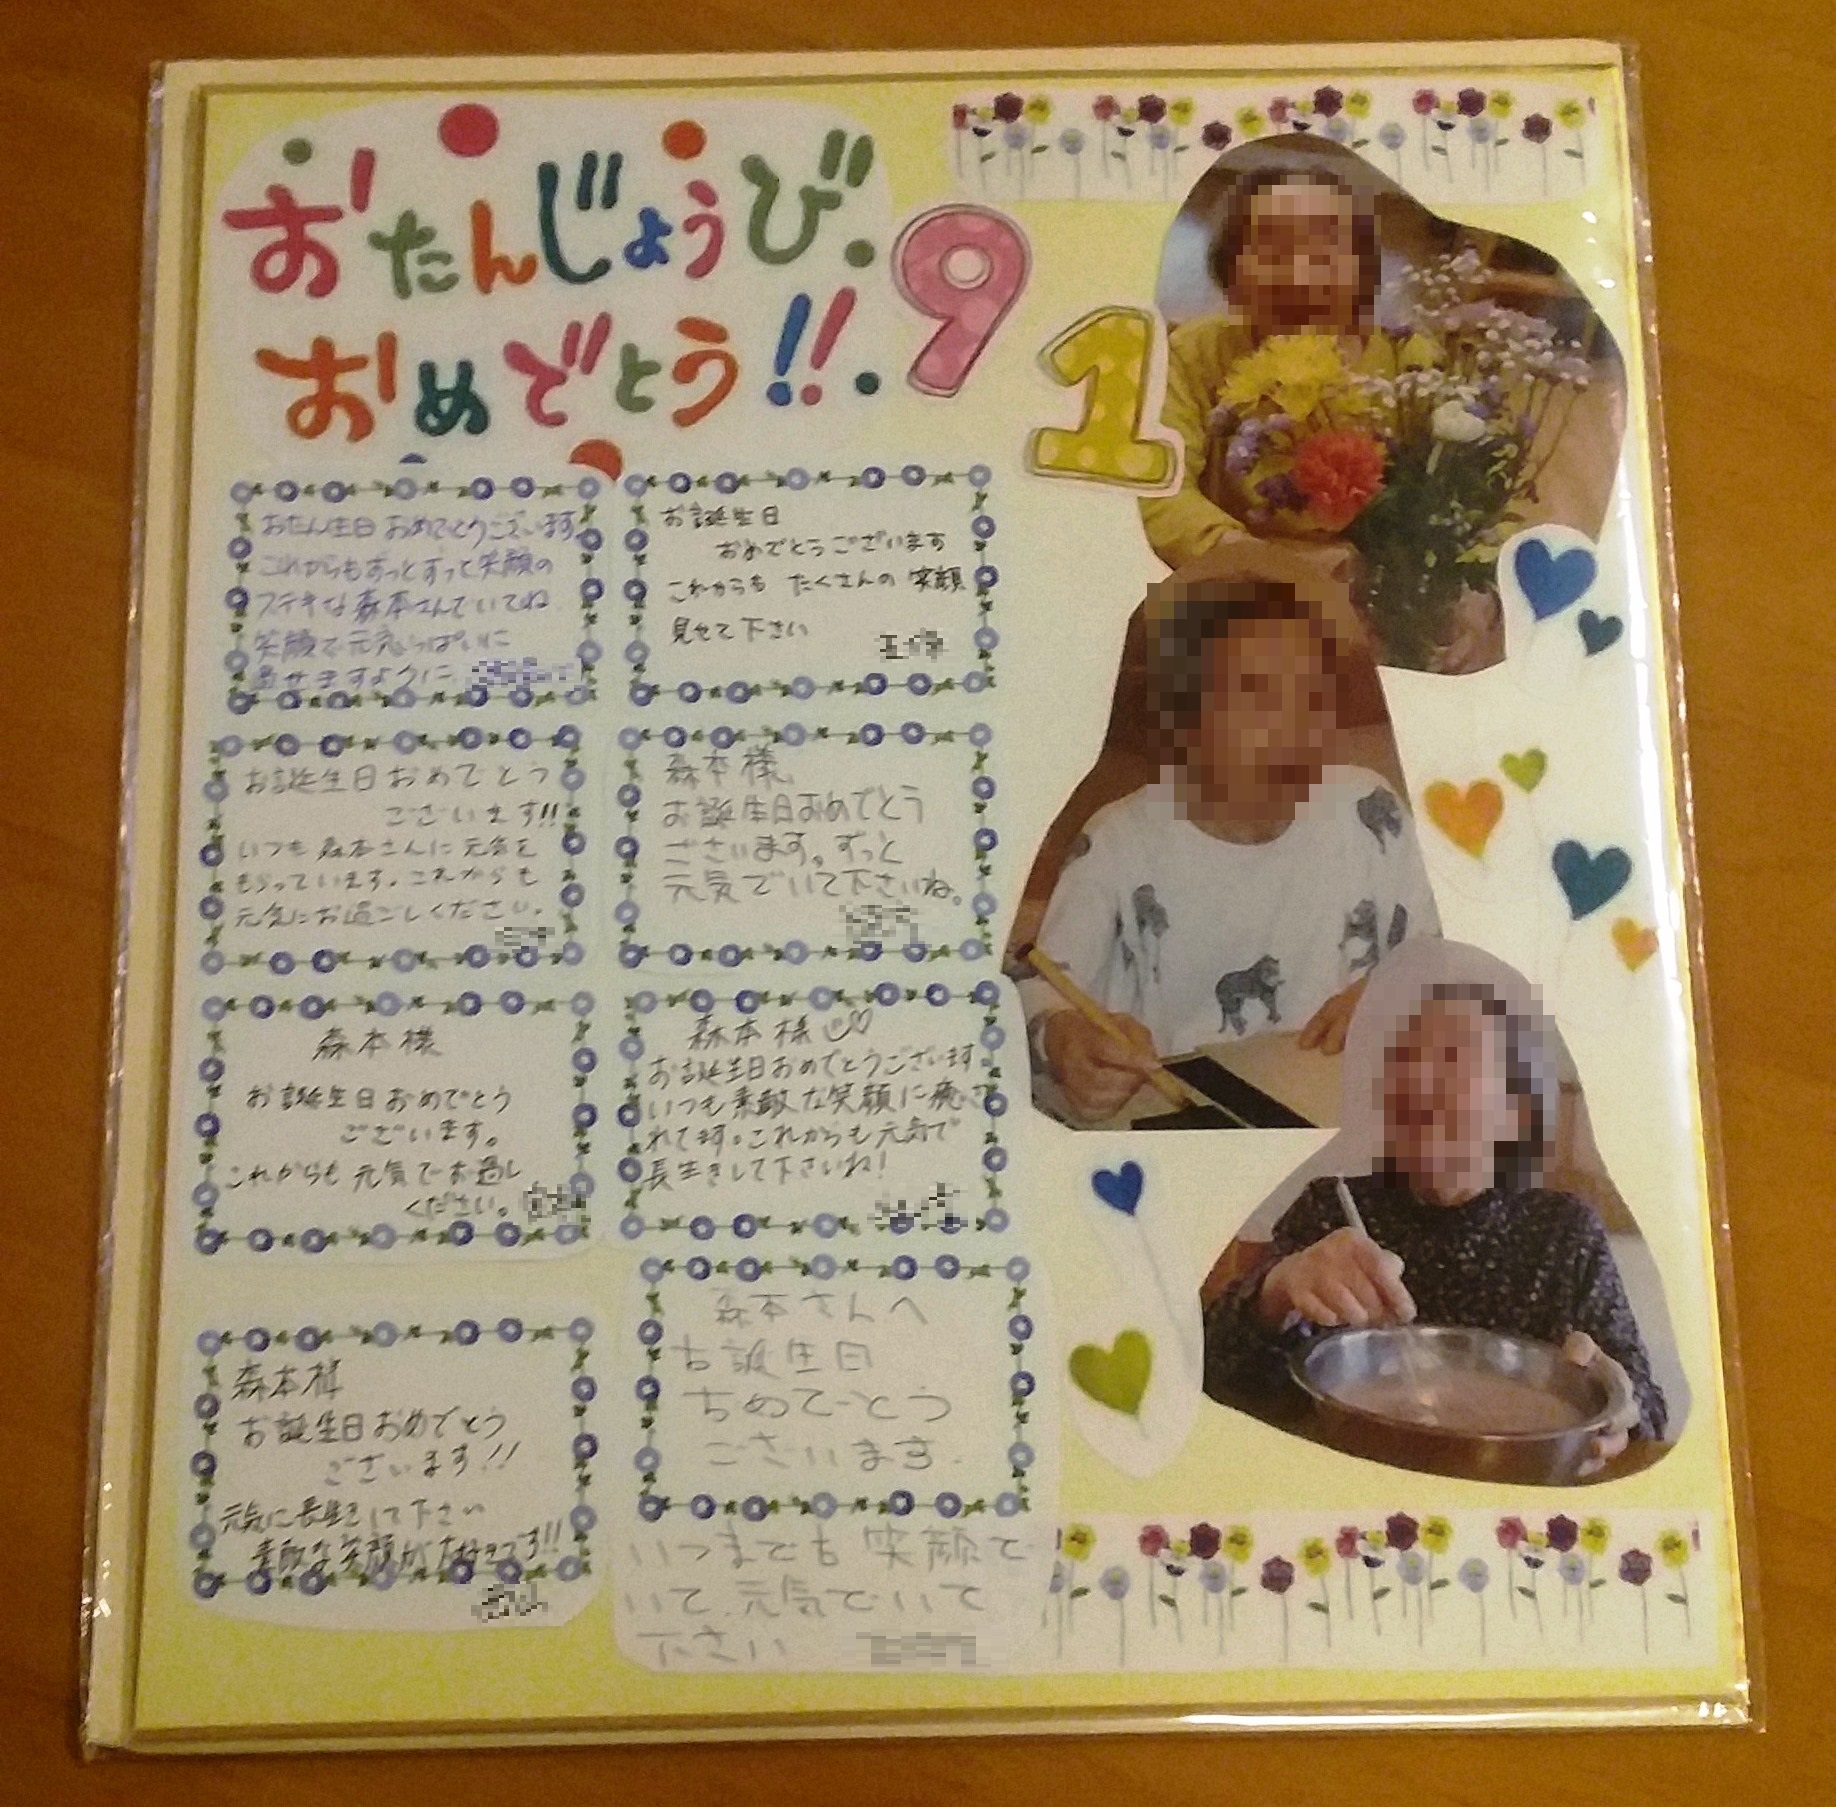 おたんじょうび
おめでとう!!
91
おたん生日 おめでとうございます
これからもずっとずっと笑顔の
ステキな森本さんでいてね
笑顔で元気いっぱいに
過せますように
お誕生日
おめでとうございます
これからも たくさんの 笑顔
見せて下さい
お誕生日おめでとう
ございます!!
いつも森本さんに元気を
もらっています。これからも
元気にお過ごしください。
森本様
お誕生日おめでとう
ございます。ずっと
元気でいて下さいね。
森本様
お誕生日おめでとう
ございます。
これからも元気でお過し
ください。
森本様
お誕生日おめでとうございます。
いつも素敵な笑顔に癒さ
れてます。これからも元気で
長生きして下さいね!
森本様
お誕生日おめでとう
ございます!!
元気に長生きして下さい
素敵な笑顔が大好きです!!
森本さんへ
お誕生日
おめでとう
ございます.
いつまでも笑顔で
いて.元気でいて
下さい